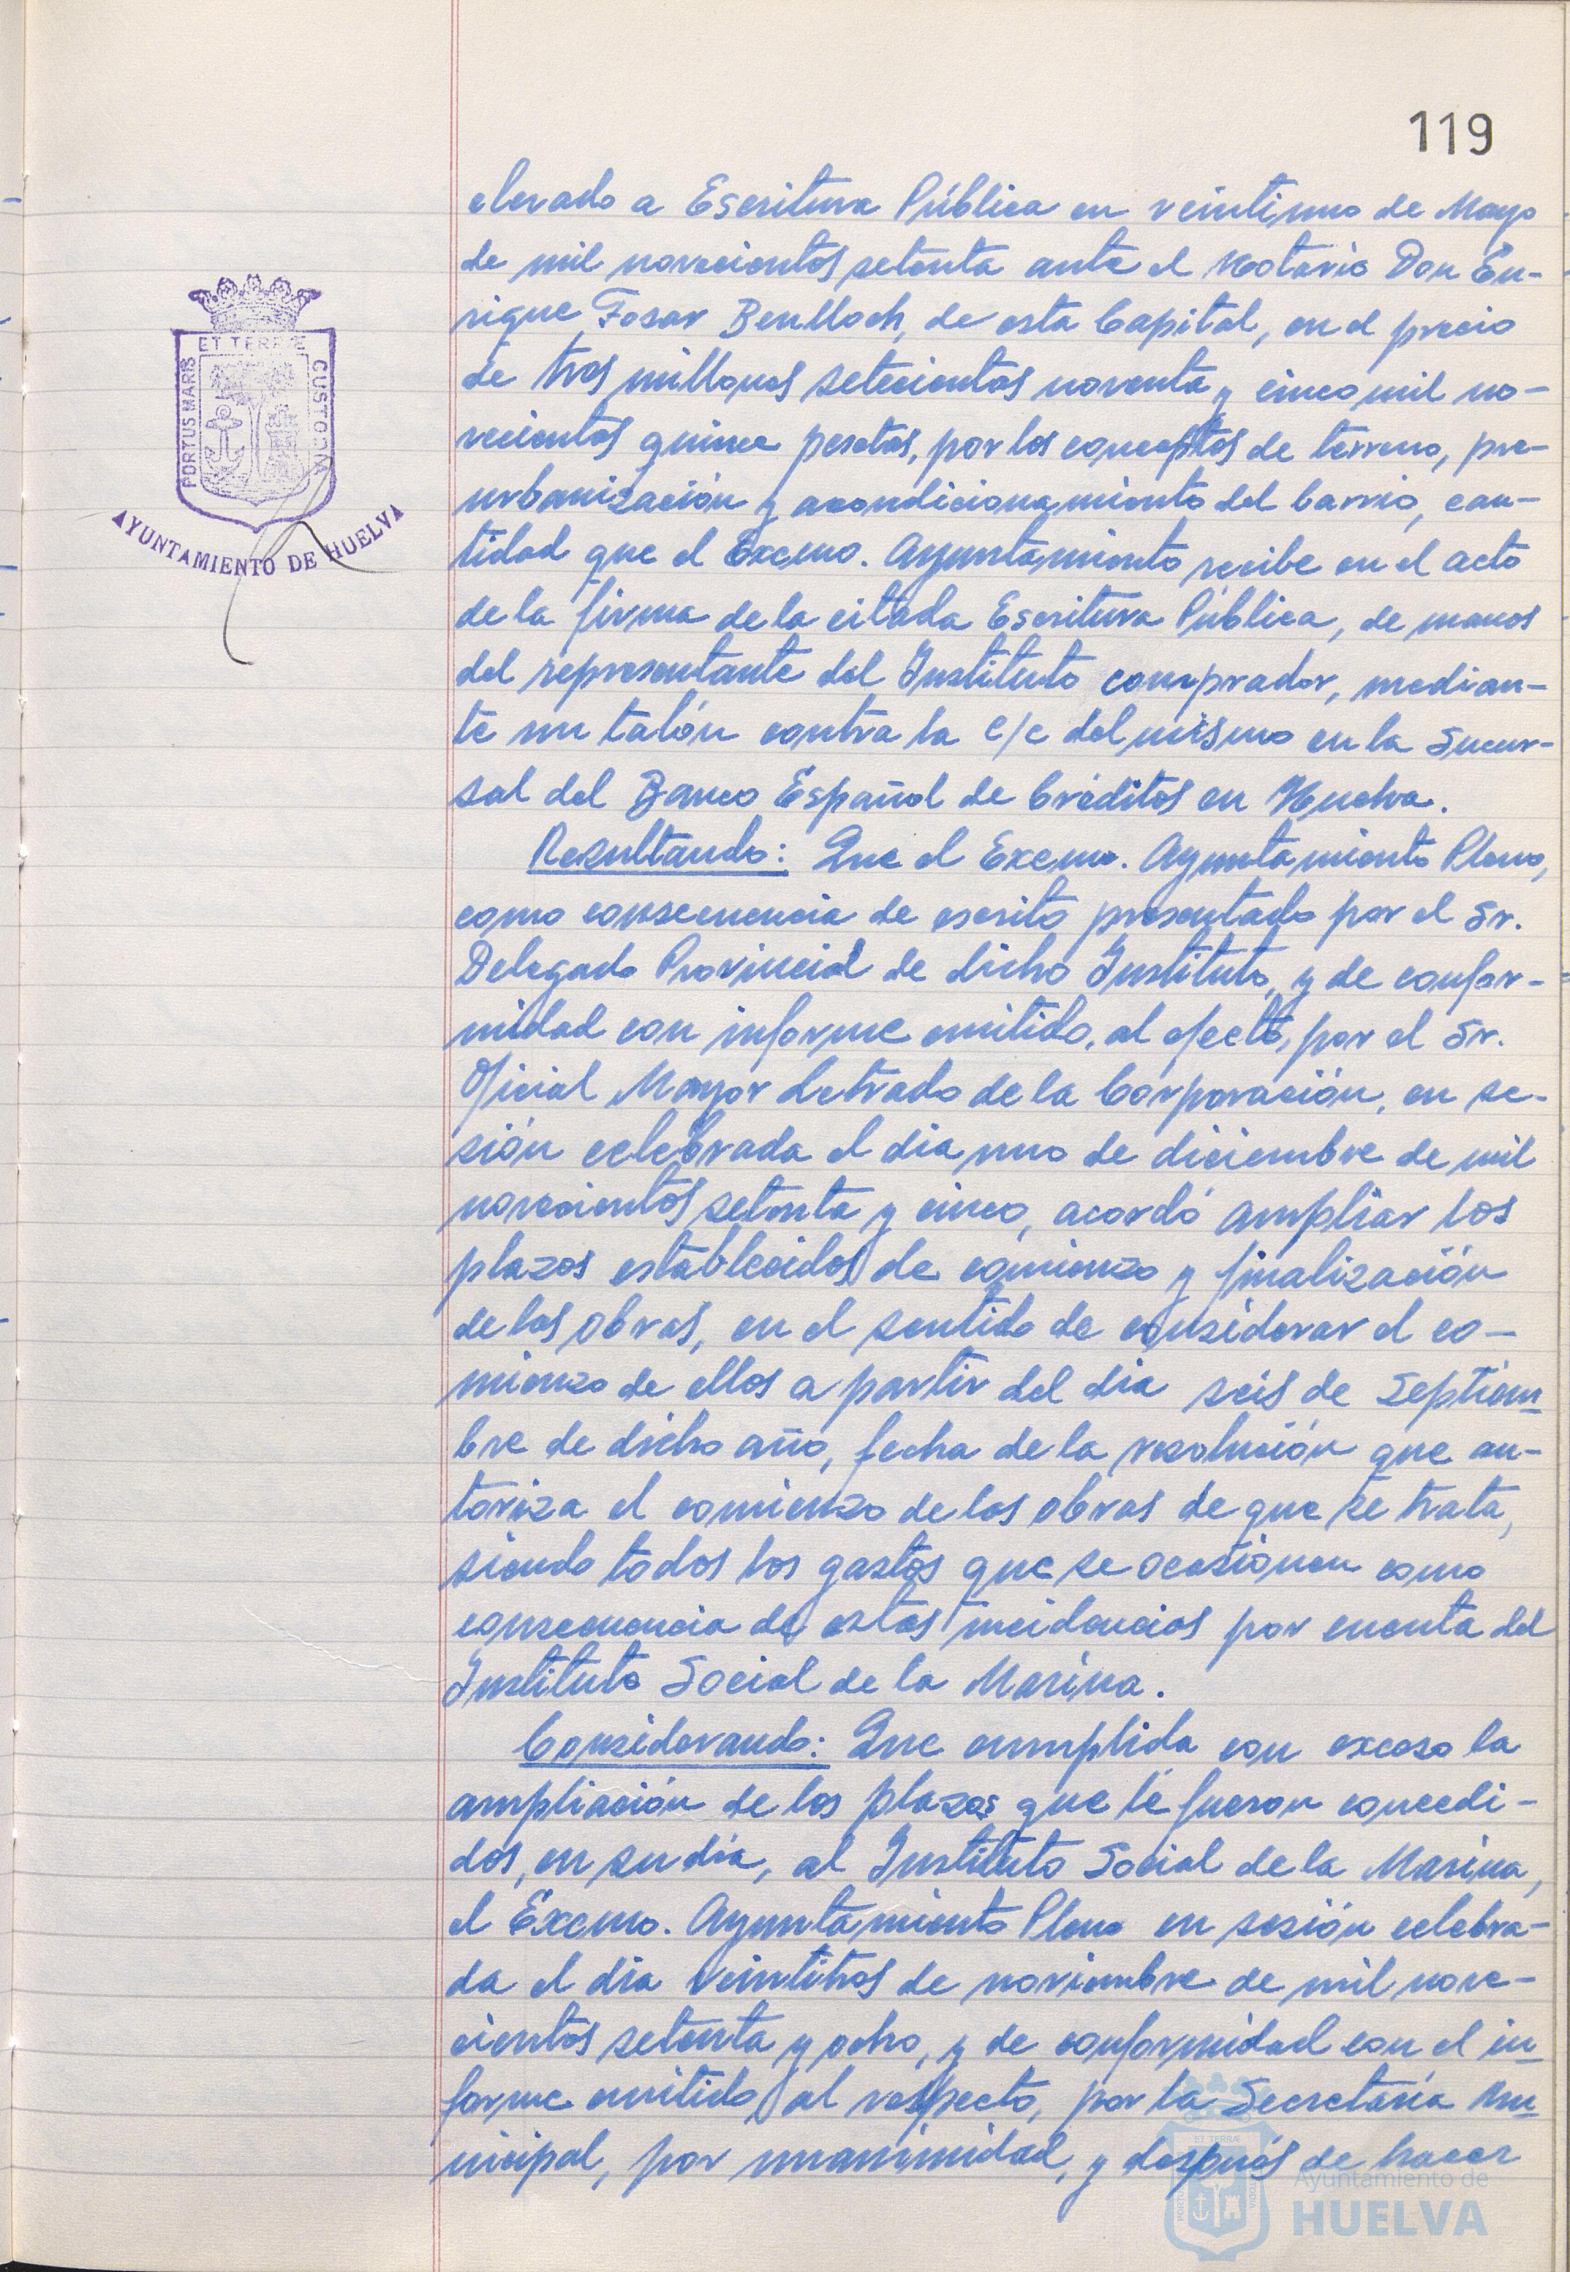 119
elevado a Escritura Pública en veintiuno de Mayo
de mil novecientos setenta ante el Notario Don En-
rique Fosar Benlloch, de esta Capital, en el precio
de tres millones setecientos noventa y cinco mil no-
vecientos quince pesetas, por los conceptos de terreno, pre-
urbanización y acondicionamiento del barrio, can-
tidad que el Excmo. Ayuntamiento recibe en el acto
de la firma de la citada Escritura Pública, de manos
del representante del Instituto comprador, median-
te un talón contra la c/c del mismo en la Sucur-
sal del Banco Español de Créditos en Huelva.
Resultando: Que el Excmo. Ayuntamiento Pleno,
como consecuencia de escrito presentado por el Sr.
Delegado Provincial de dicho Instituto, y de confor-
midad con informe emitido, al efecto, por el Sr.
Oficial Mayor Letrado de la Corporación, en se-
sión celebrada el dia uno de diciembre de mil
novecientos setenta y cinco, acordó ampliar los
plazos establecidos de comienzo y finalización
de las obras, en el sentido de considerar el co-
mienzo de ellos a partir del dia seis de Septiem-
bre de dicho año, fecha de la resolución que au-
toriza el comienzo de las obras de que se trata,
siendo todos los gastos que se ocasionen como
consecuencia de estas incidencias por cuenta del
Instituto Social de la Marina.
Considerando: Que cumplida con exceso la
ampliación de los plazos que le fueron concedi-
dos, en su día, al Instituto Social de la Marina,
el Excmo. Ayuntamiento Pleno en sesión celebra-
da el dia veintitres de noviembre de mil nove-
cientos setenta y ocho, y de conformidad con el in-
forme emitido, al respecto, por la Secretaría Mu-
nicipal, por unanimidad, y después de hacer
PORTUS MARIS
ET TERRÆ
CUSTODIA
AYUNTAMIENTO DE HUELVA
Ayuntamiento de
HUELVA